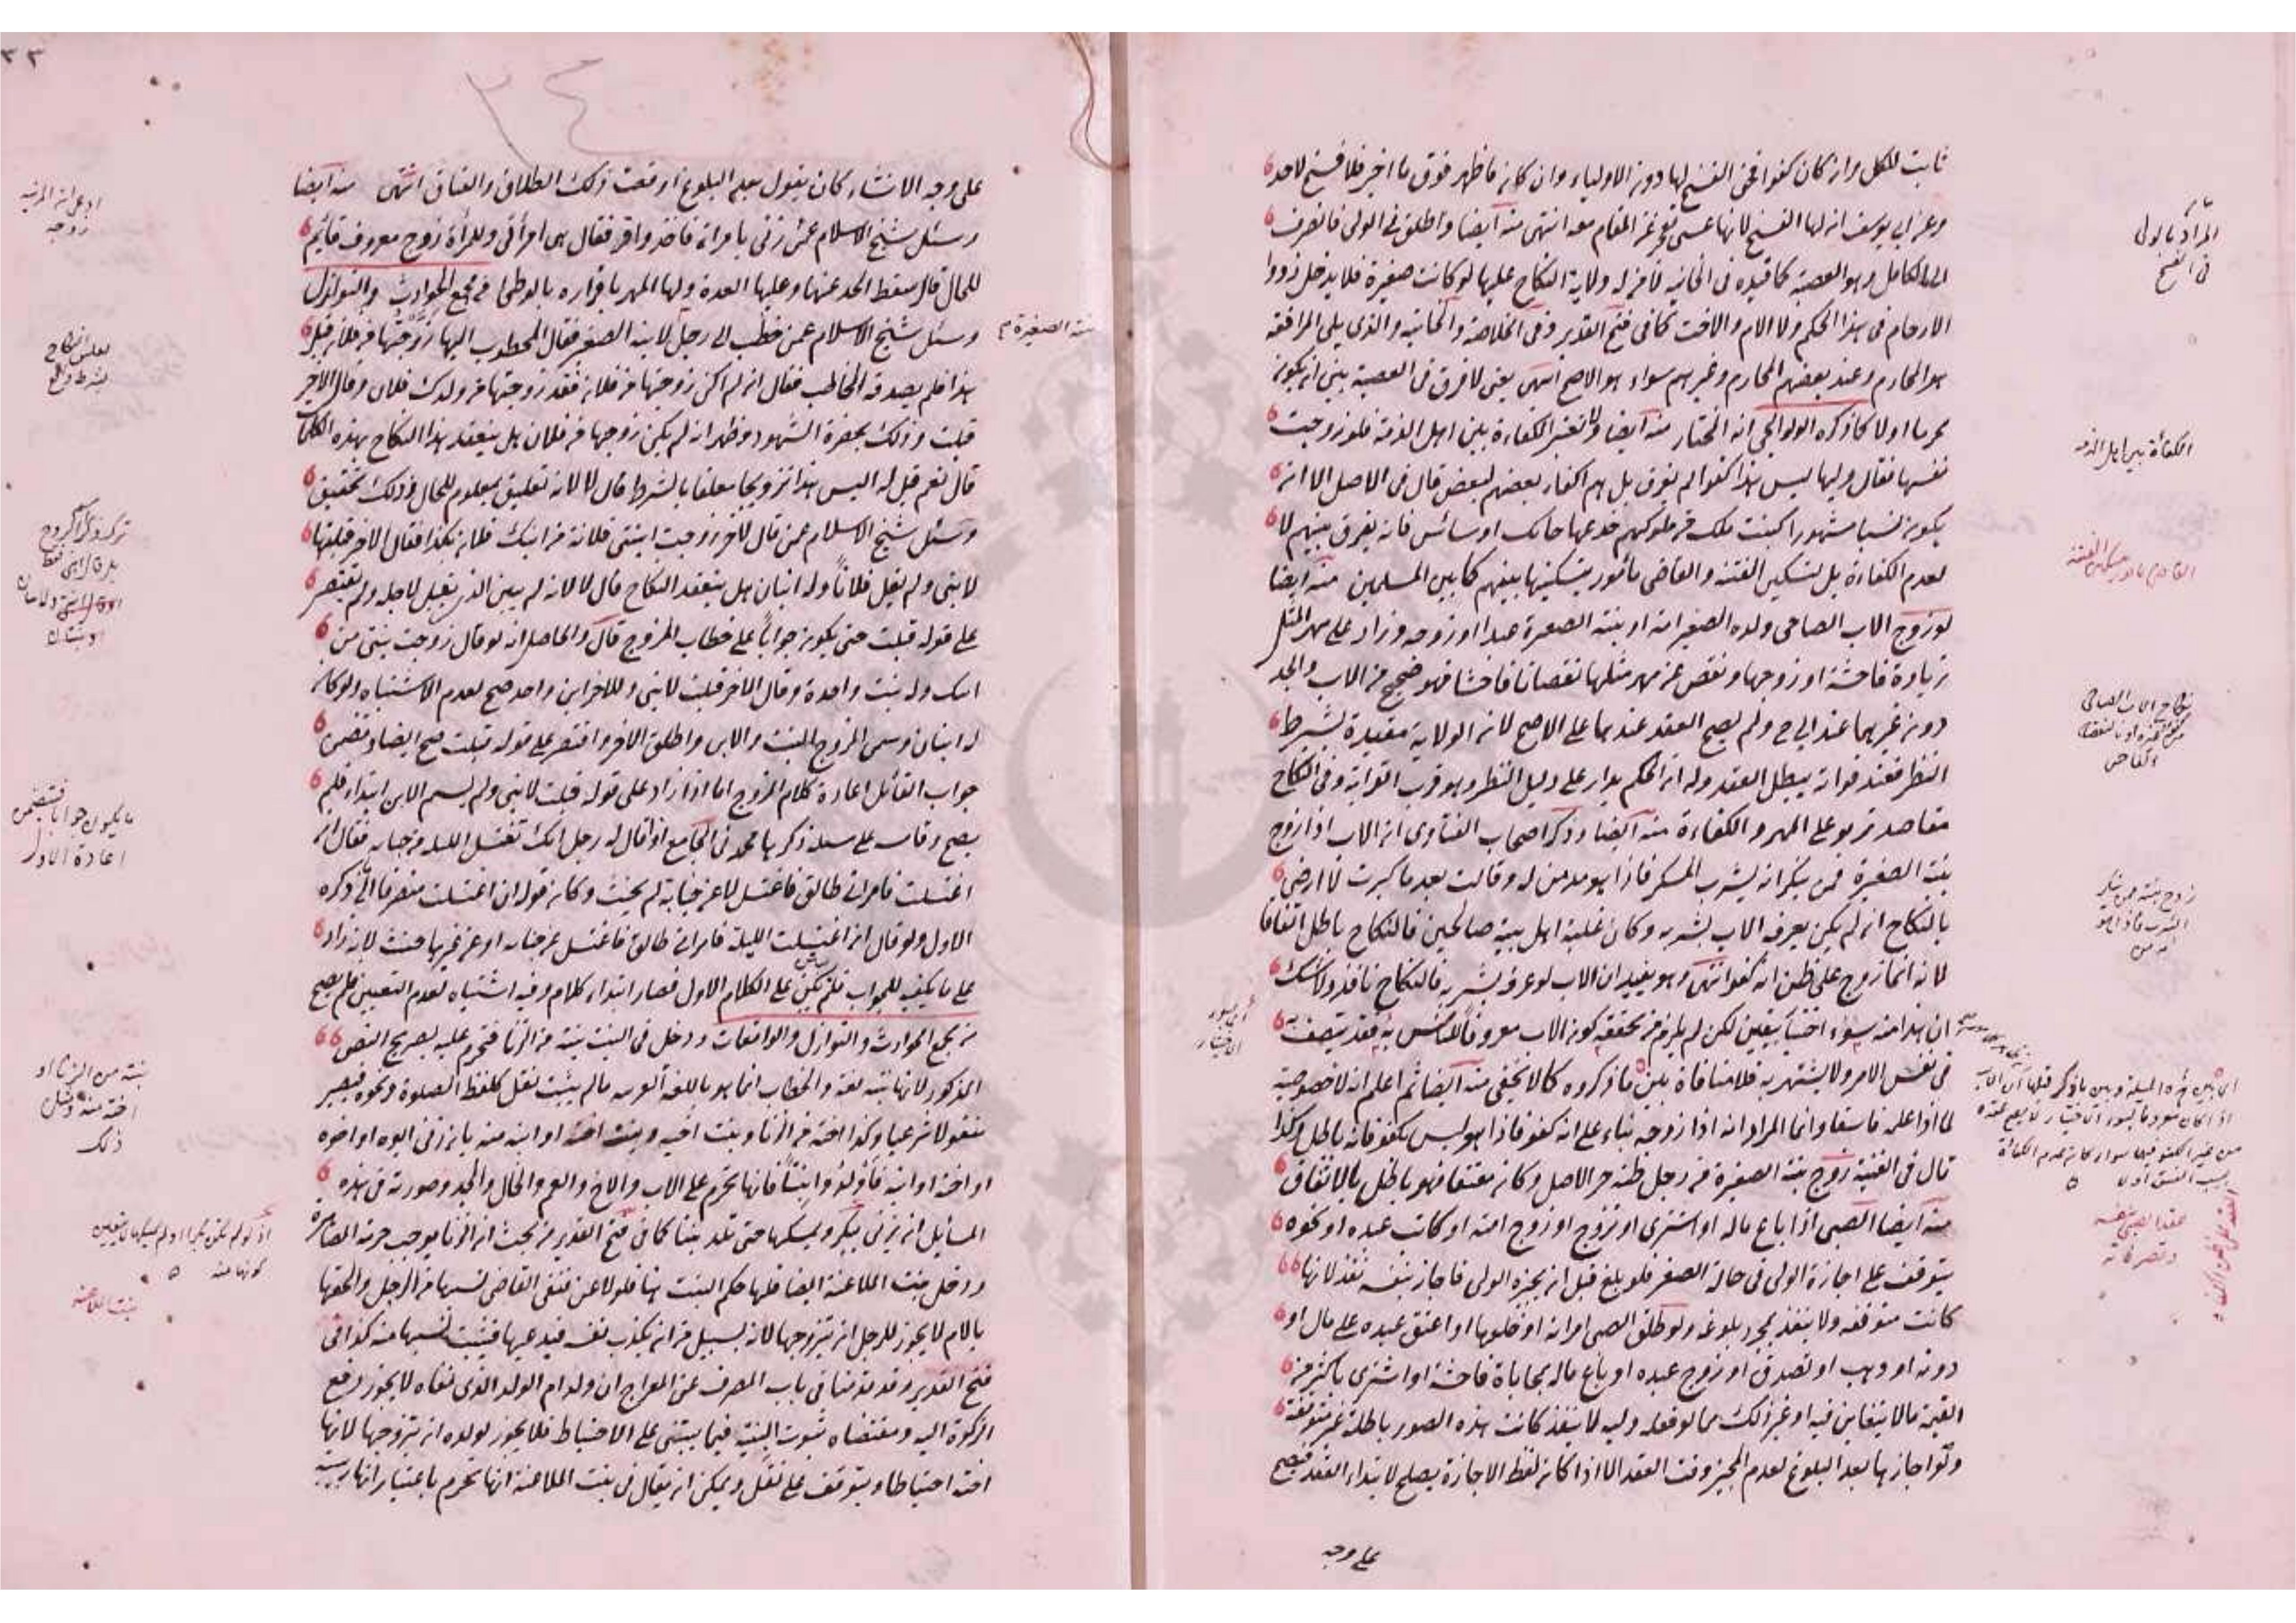 ثابت للكل وان كان كفوا فحق الفسخ لها دون الاولياء وان كان ما ظهر فوق ما اخبر فلا فسخ لاحد
وعن ابي يوسف ان لها الفسخ لانها عسى تعجز عن المقام معه انتهى منه ايضا واطلق في الولى فانصرف
الى الكامل وهو العصبة كما قيده في الخانية لا من له ولاية النكاح عليها لو كانت صغيرة فلا يدخل ذووا
الارحام في هذا الحكم ولا الام والاخت كما في فتح القدير وفي الخلاصة والخانية والذي يلى المرافعة
هو المحارم وعند بعضهم المحارم وغيرهم سواء هو الاصح انتهى يعنى لا فرق في العصبة بين ان يكون
محرما اولا كما ذكره الولوالجي انه المختار منه ايضا ولا تعتبر الكفاءة بين اهل الذمة فلو زوجت
نفسها فقال وليها ليس هذا كفوا لم يفرق بل هم اكفاء بعضهم لبعض قال في الاصل الا ان
يكون نسبا مشهورا كبنت ملك من ملوكهم خدعها حائك او سائس فانه يفرق بينهم لا
لعدم الكفاءة بل لتسكين الفتنة والقاضى مأمور بتسكينها بينهم كما بين المسلمين منه ايضا
لو زوج الاب الصاحي ولده الصغير امة او بنته الصغيرة عبدا او زوجه وزاد على مهر المثل
زيادة فاحشة او زوجها ونقص عن مهر مثلها نقصانا فاحشا فهو صحيح من الاب والجد
دون غيرهما عند ابي ح ولم يصح العقد عندهما على الاصح لان الولاية مقيدة بشرط
النظر فعند فواته يبطل العقد وله ان الحكم يدار على دليل النظر وهو قرب القرابة وفي النكاح
مقاصد تربو على المهر والكفاءة منه ايضا وذكر اصحاب الفتاوى ان الاب اذا زوج
بنته الصغيرة فمن ينكر انه يشرب المسكر فاذا هو مدمن له وقالت بعد ما كبرت لا ارضى
بالنكاح ان لم يكن يعرفه الاب بشربه وكان غلبة اهل بيته صالحين فالنكاح باطل اتفاقا
لانه انما زوج على ظن انه كفو انتهى وهو يفيد ان الاب لو عرفه بشربه فالنكاح نافذ ولا شك
ان هذا منه سوء اختيار بيقين لكن لم يلزم من تحققه كون الاب معروفا للناس به فقد يتصف به
في نفس الامر ولا يشتهر به فلا منافاة بين ما ذكروه كما لا يخفى منه ايضا ثم اعلم انه لا خصوصية
لما اذا علمه فاسقا وانما المراد انه اذا زوجه بناء على انه كفو فاذا هو ليس بكفو فانه باطل وكذا
قال في القنية زوج بنته الصغيرة من رجل ظنه حر الاصل وكان معتقا فهو باطل بالاتفاق
منه ايضا الصبى اذا باع ماله او اشترى او تزوج او زوج امته او كاتب عبده او نحوه
يتوقف على اجازة الولى في حالة الصغر فلو بلغ قبل ان يجيزه الولى فاجاز بنفسه نفذ لانها
كانت متوقفه ولا ينفذ بمجرد بلوغه ولو طلق الصبى امراته او خلعها او اعتق عبده على مال او
دونه او وهب او تصدق او زوج عبده او باع ماله بمحاباة فاحشة او اشترى باكثر من
القيمة مالا يتغابن فيه او غير ذلك مما لو فعله وليه لا ينفذ كانت هذه الصور باطلة غير متوقفة
ولو اجازها بعد البلوغ لعدم المجيز وقت العقد الا اذا كان لفظ الاجازة يصلح لابتداء العقد فيصح
على وجه
المراد بالولى
في الفسخ
الكفاءة بين اهل الذمه
القاضى مامور بتسكين الفتنة
نكاح الاب الصاحي
عقد الصبى نفسه
وتصرفاته
على وجه الانشاء كان يقول بعد البلوغ اوقعت ذلك الطلاق والعتاق انتهى منه ايضا
وسئل شيخ الاسلام عمن زنى بامراة فاخذ واقر فقال هى امرأتى وللمرأة زوج معروف قائم
للحال قال سقط الحد عنها وعليها العدة ولها المهر باقراره بالوطئ من مجمع الحوادث والنوازل
وسئل شيخ الاسلام عمن خطب الى رجل لابنه الصغير فقال المخطوب اليها زوجتها من فلان قبل
هذا فلم يصدقه الخاطب فقال ان لم اكن زوجتها من فلان فقد زوجتها من ولدك فلان وقال الاخر
قبلت وذلك بحضرة الشهود وظهر انه لم يكن زوجها من فلان هل ينعقد هذا النكاح بهذه الكلمات
قال نعم قيل له اليس هذا تزويجا معلقا بالشرط قال لا لانه تعليق بمعلوم للحال وذلك تحقيق
وسئل شيخ الاسلام عمن قال لآخر زوجت ابنتى فلانة من ابنك فلان بكذا فقال الاخر قبلتها
لابنى ولم يقل فلانا وله ابنان هل ينعقد النكاح قال لا لانه لم يبين الذى يقبل لاجله ولم يقتصر
على قوله قبلت حتى يكون جوابا على خطاب المزوج قال والحاصل انه لو قال زوجت بنتى من
ابنك وله بنت واحدة وقال الاخر قبلت لابنى وللآخر ابن واحد صح لعدم الاشتباه ولو كان
له ابنان وسمى المزوج البنت والابن واطلق الاخر واقتصر على قوله قبلت صح ايضا وتضمن
جواب القائل اعادة كلام المزوج اما اذا زاد على قوله قبلت لابنى ولم يسم الابن ابتداء فلم
يصح وقاسه على مسئلة ذكرها محمد في الجامع اذا قال له رجل انك تغتسل الليلة من جنابة فقال ان
اغتسلت فامراتى طالق فاغتسل لا عن جنابة لم يحنث وكان قوله ان اغتسلت منصرفا الى ذكره
الاول ولو قال ان اغتسلت الليلة فامراتى طالق فاغتسل عن جنابة او عن غيرها حنث لانه زاد
على ما يكفيه للجواب فلم يكن على الكلام الاول فصار ابتداء كلام وفيه اشتباه لعدم التعيين فلم يصح
من مجمع الحوادث والنوازل والواقعات ودخل في البنت بنته من الزنا فتحرم عليه بصريح النص
المذكور لانها بنته لغة والخطاب انما هو باللغة العربية مالم يثبت نقل كلفظ الصلوة ونحوه فيصير
منقولا شرعيا وكذا اخته من الزنا وبنت اخيه وبنت اخته او ابنه منه بان زنى ابوه او اخوه
او اخته او ابنه فاولدوا بنتا فانها تحرم على الاب والاخ والعم والخال والجد وصورته في هذه
المسائل ان يزنى ببكر ويمسكها حتى تلد بنتا كما في فتح القدير من بحث ان الزنا يوجب حرمة المصاهرة
ودخل بنت الملاعنة ايضا فلها حكم البنت هنا فلو لاعن فنفى القاضى نسبها من الرجل والحقها
بالام لا يجوز للرجل ان يتزوجها لانه بسبيل من ان يكذب نفسه فيدعيها فيثبت نسبها منه كذا في
فتح القدير وقد قدمنا في باب المصرف عن المعراج ان ولد ام الولد الذى نفاه لا يجوز دفع
الزكوة اليه ومقتضاه ثبوت البنتية فيما يبتنى على الاحتياط فلا يجوز لولده ان يتزوجها لانها
اخته احتياطا ويتوقف على نقل ويمكن ان يقال في بنت الملاعنة انها تحرم باعتبار انها ربيبة
ادعى ان المزنية
زوجته
تعليق النكاح
بشرط واقع
ما يكون جوابا يتضمن
اعادة الاول
بنته من الزنا او
اخته منه وبنتل
ذلك
بنت الملاعنة
٣٤
٣٣